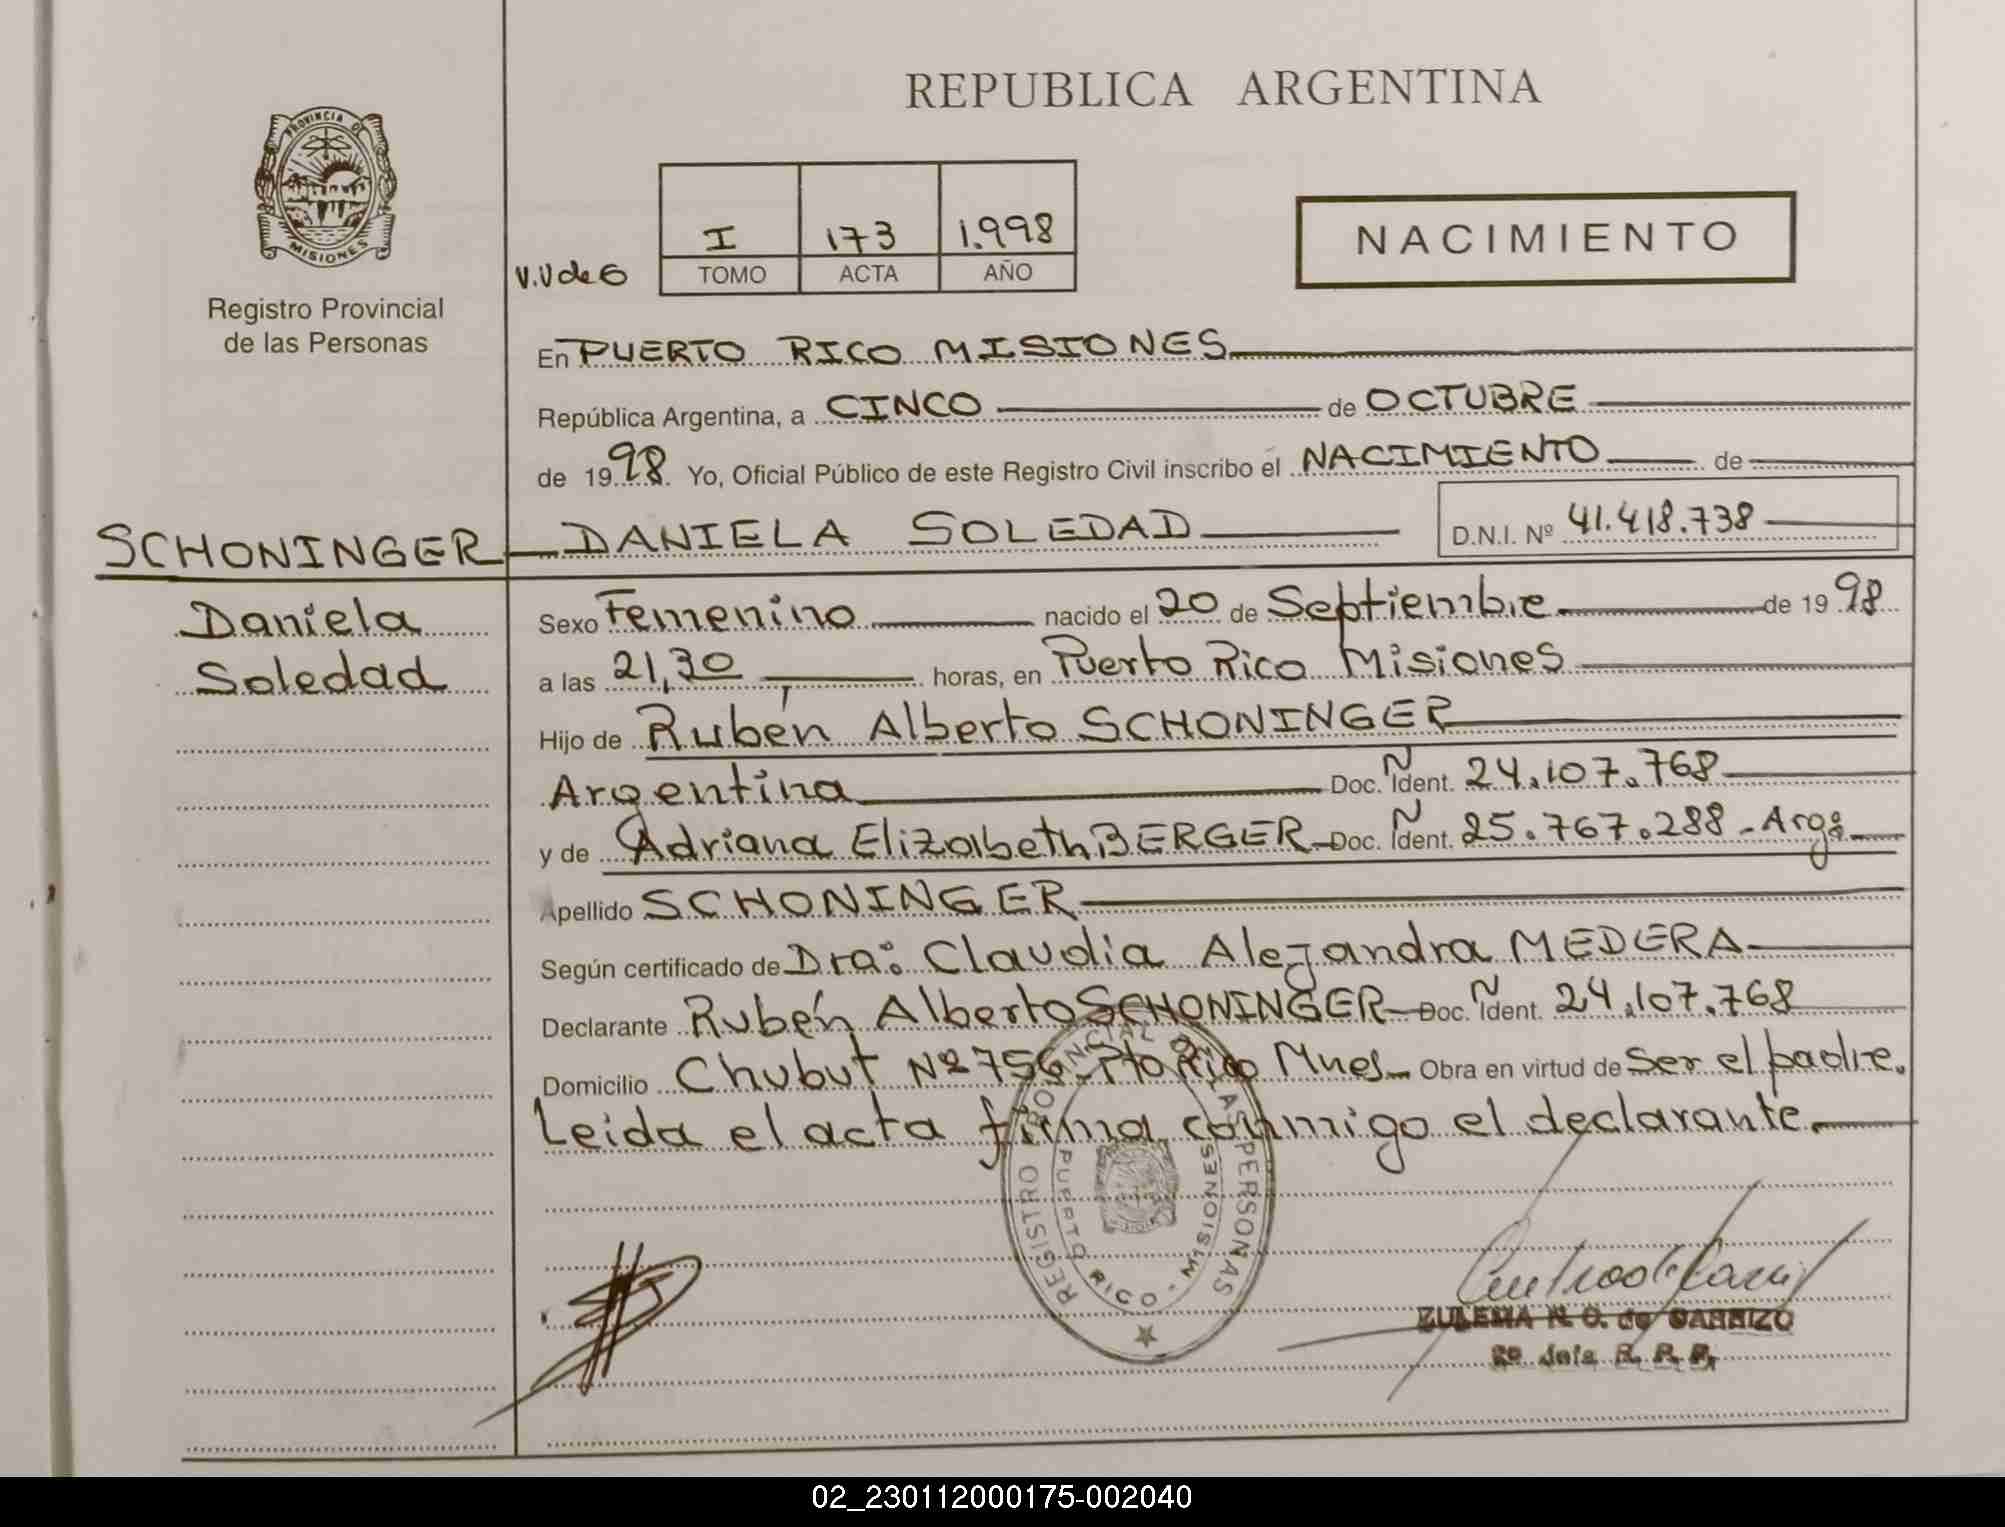 REPUBLICA ARGENTINA
PROVINCIA DE
MISIONES
Registro Provincial
de las Personas
V.V de 6
I 173 1.998
TOMO ACTA AÑO
NACIMIENTO
En PUERTO RICO MISIONES
República Argentina, a CINCO de OCTUBRE
de 1998 Yo, Oficial Público de este Registro Civil inscribo el NACIMIENTO de
SCHONINGER DANIELA SOLEDAD D.N.I. Nº 41.418.738
Daniela
Soledad
Sexo Femenino nacido el 20 de Septiembre de 1998
a las 21,30 horas, en Puerto Rico Misiones
Hijo de Rubén Alberto SCHONINGER
Argentina Doc. Ident. 24.107.768
y de Adriana Elizabeth BERGER Doc. Ident. 25.767.288 - Arg:
Apellido SCHONINGER
Según certificado de Dra: Claudia Alejandra MEDERA
Declarante Rubén Alberto SCHONINGER Doc. Ident. 24.107.768
Domicilio Chubut Nº 756 - Pto Rico Mnes Obra en virtud de Ser el padre.
Leida el acta firma conmigo el declarante.
REGISTRO PROVINCIAL DE LAS PERSONAS
PUERTO RICO - MISIONES
ZULEMA N. O. de CARRIZO
2º Jefa R. P. P.
02_230112000175-002040